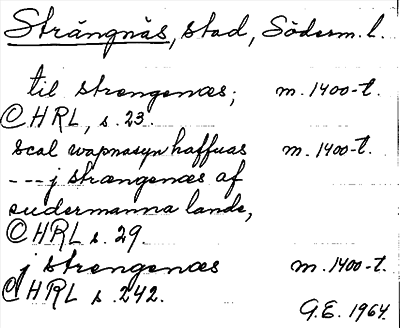 Strängnäs, stad, Söderm. l.
til strengenæs; m. 1400-t.
© HRL, s. 23.
scal wapnasyn haffuas m. 1400-t.
--- j strængenæs af
sudermanna lande,
© HRL s. 29.
j strengenæs m. 1400-t.
© HRL s. 242.
G.E. 1964.